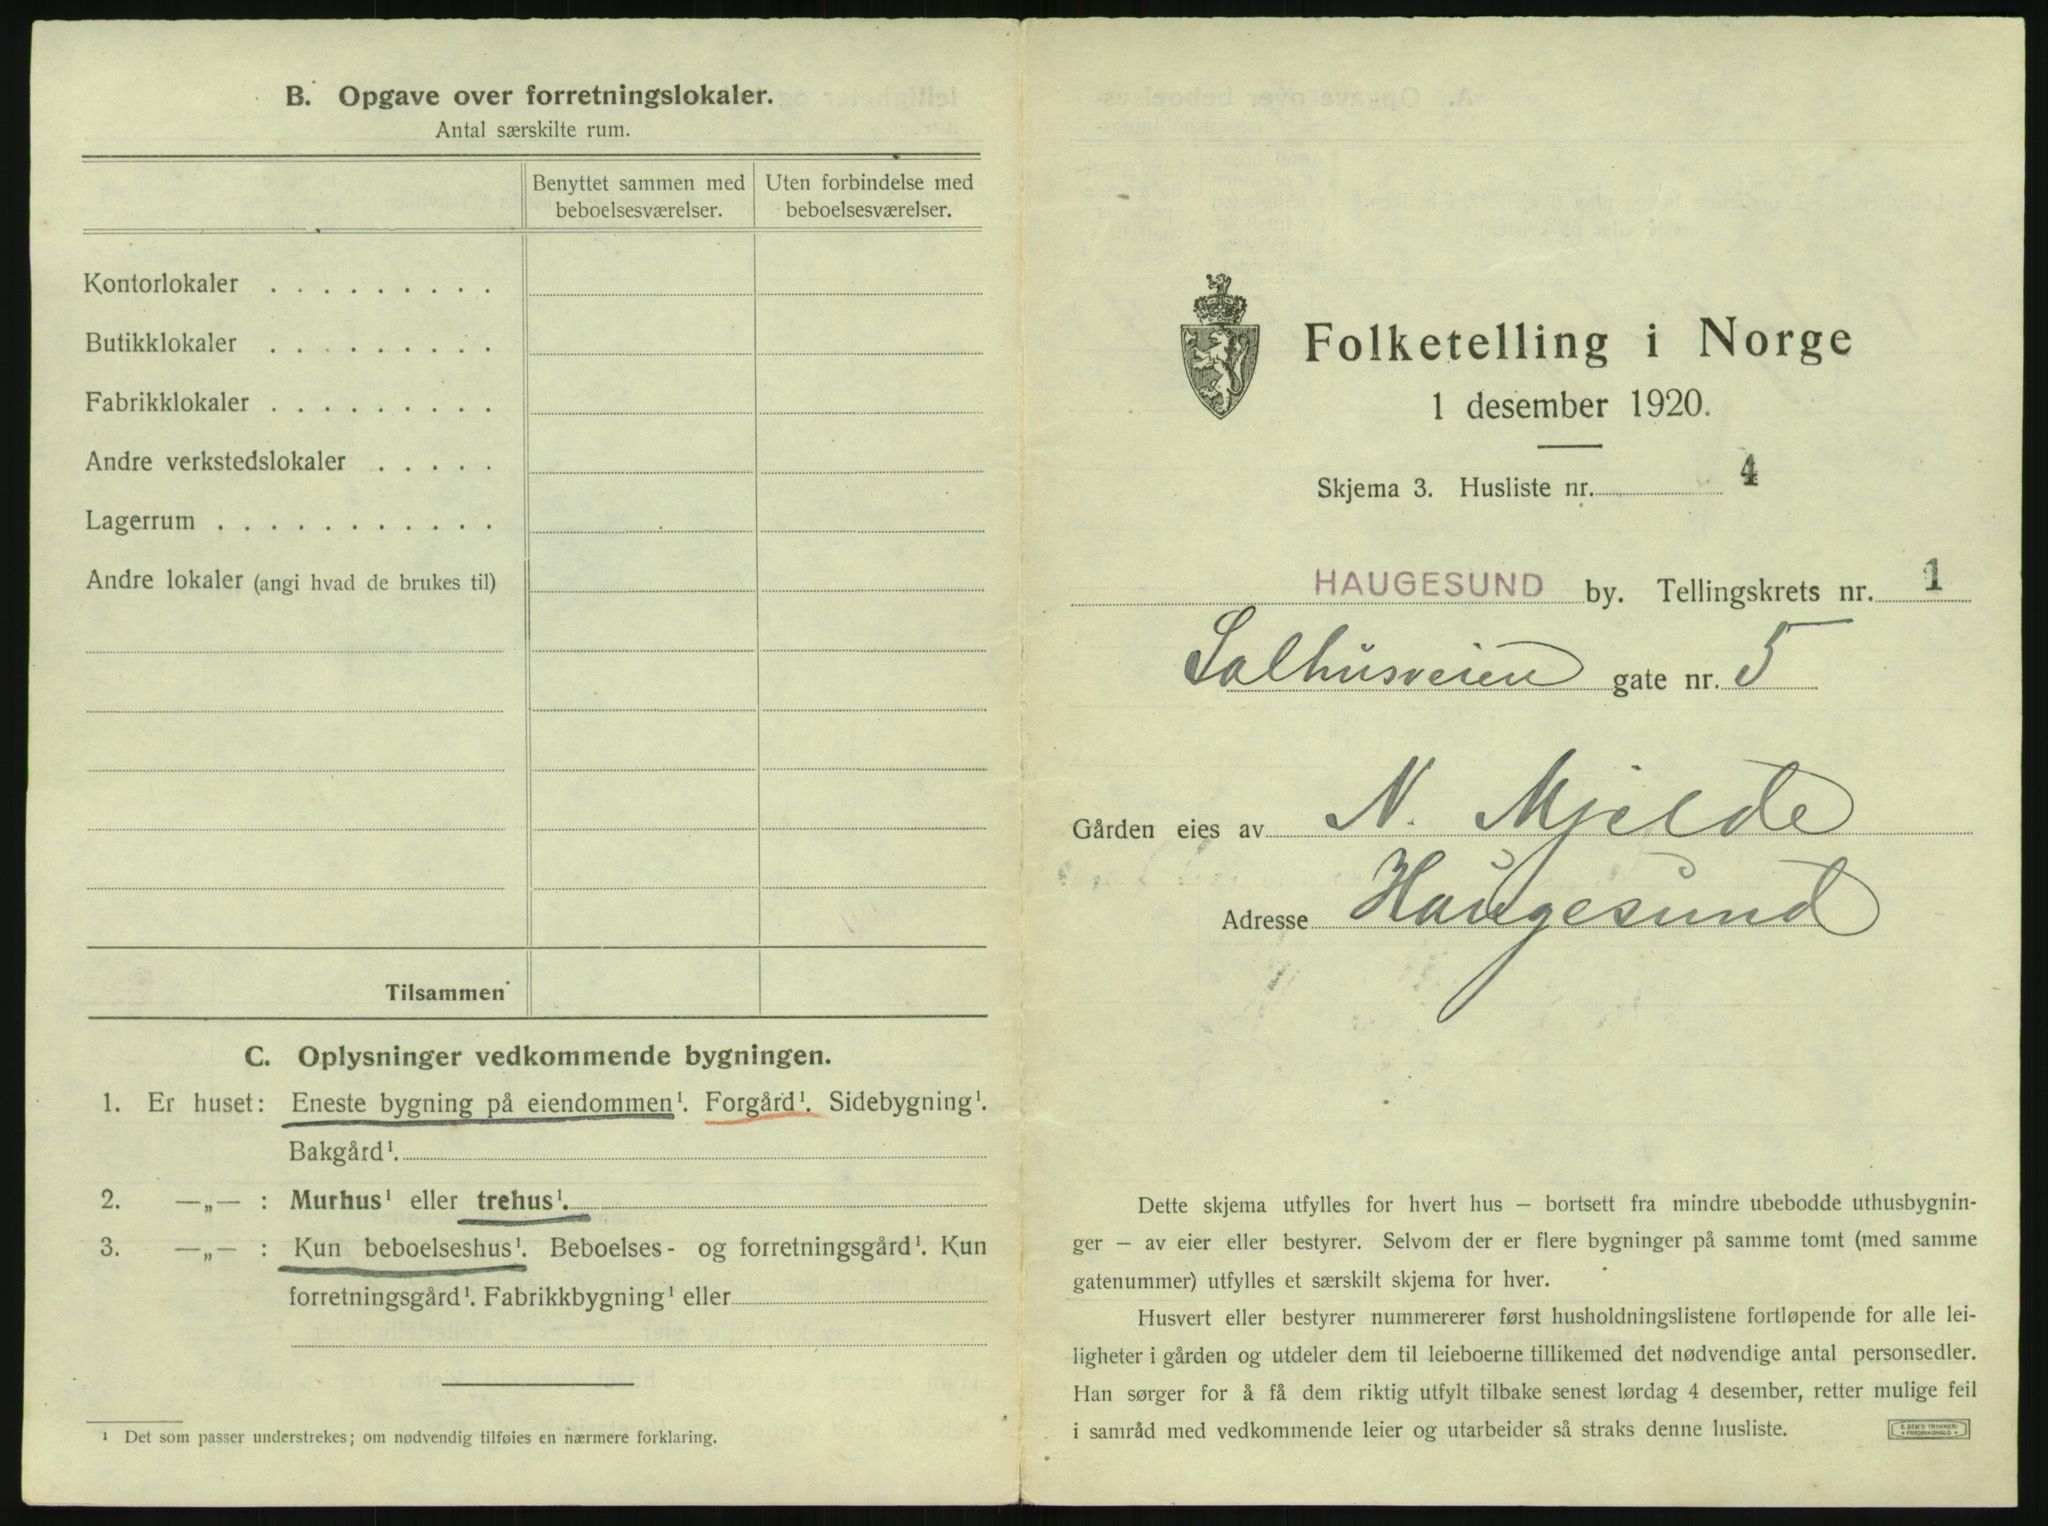 B. Opgave over forretningslokaler.
Antal særskilte rum.
Benyttet sammen med beboelsesværelser.
Uten forbindelse med beboelsesværelser.
Kontorlokaler . . . . . . . . .
Butikklokaler . . . . . . . . .
Fabrikklokaler . . . . . . . . .
Andre verkstedslokaler . . . . .
Lagerrum . . . . . . . . . . .
Andre lokaler (angi hvad de brukes til)
Tilsammen
C. Oplysninger vedkommende bygningen.
1. Er huset: Eneste bygning på eiendommen¹. Forgård¹. Sidebygning¹.
Bakgård¹.
2. —„— : Murhus¹ eller trehus¹.
3. —„— : Kun beboelseshus¹. Beboelses- og forretningsgård¹. Kun
forretningsgård¹. Fabrikkbygning¹ eller
¹ Det som passer understrekes; om nødvendig tilføies en nærmere forklaring.
Folketelling i Norge
1 desember 1920.
Skjema 3. Husliste nr. 4
HAUGESUND by. Tellingskrets nr. 1
Salhusveien gate nr. 5
Gården eies av N. Mjelde
Adresse Haugesund
Dette skjema utfylles for hvert hus – bortsett fra mindre ubebodde uthusbygnin-
ger – av eier eller bestyrer. Selvom der er flere bygninger på samme tomt (med samme
gatenummer) utfylles et særskilt skjema for hver.
Husvert eller bestyrer nummererer først husholdningslistene fortløpende for alle lei-
ligheter i gården og utdeler dem til leieboerne tillikemed det nødvendige antal personsedler.
Han sørger for å få dem riktig utfylt tilbake senest lørdag 4 desember, retter mulige feil
i samråd med vedkommende leier og utarbeider så straks denne husliste.
E. SEM'S TRYKKERI
FREDRIKSHALD